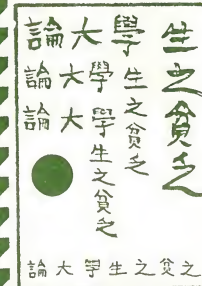 論大學生之貧乏
論大學生之貧乏
論大學生之貧乏
論大學生之貧乏